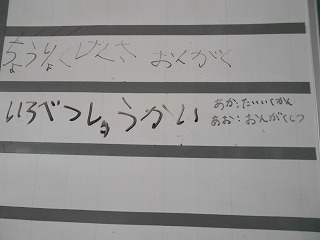 ちょうりょくけんさ おんがく
いろべつしょうかい
あか:たいいくかん
あお:おんがくしつ